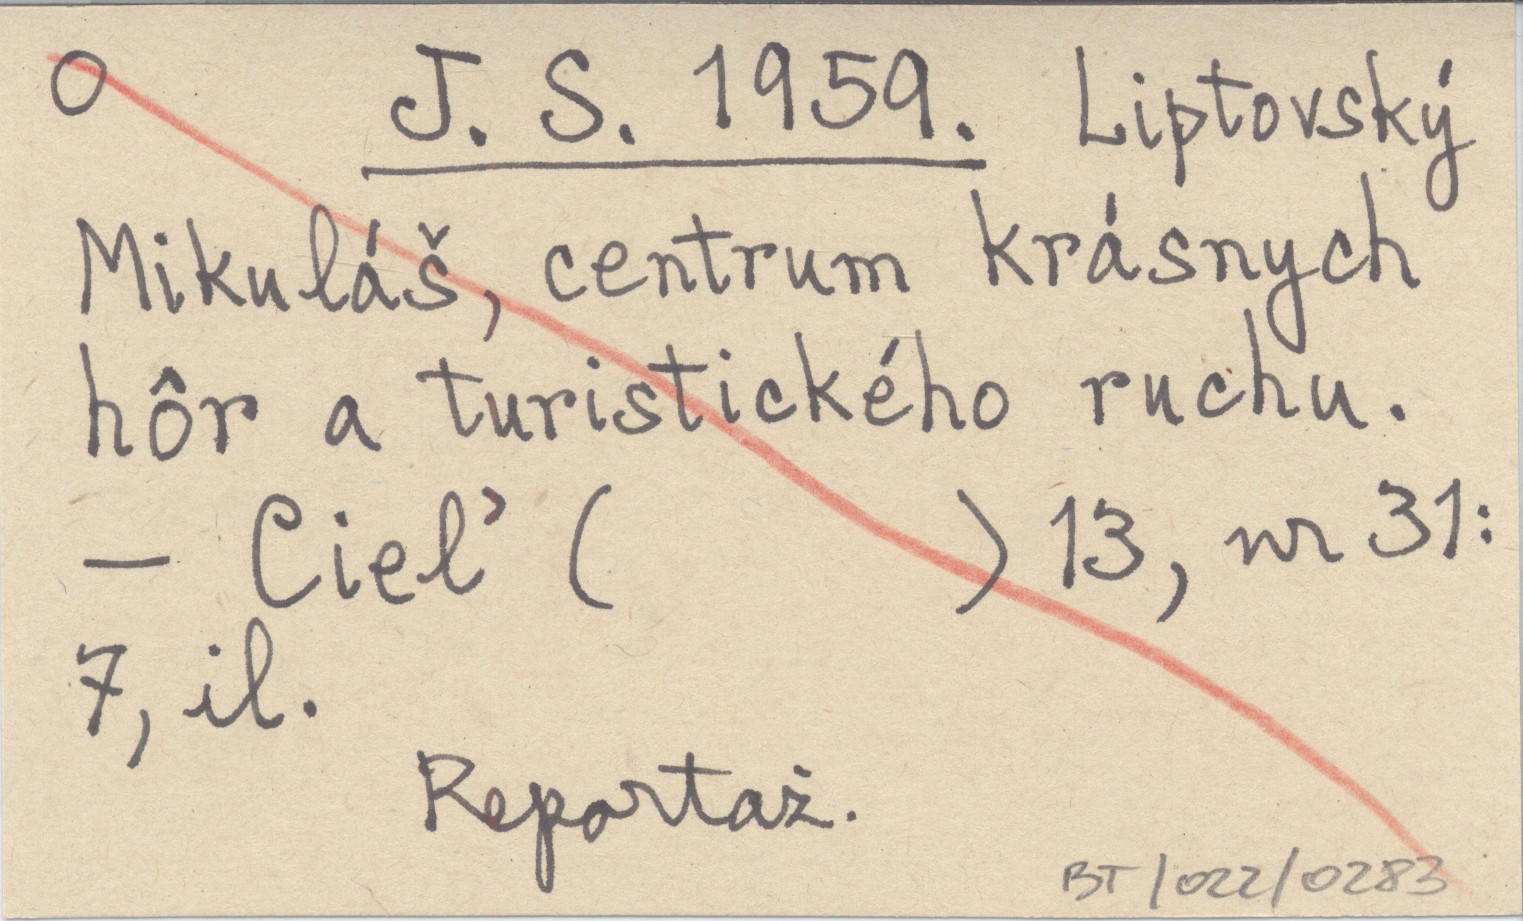 O J. S. 1959. Liptovský
Mikuláš, centrum krásnych
hôr a turistického ruchu.
— Cieľ ( ) 13, nr 31:
7, il.
Reportaż.
BT/022/0283